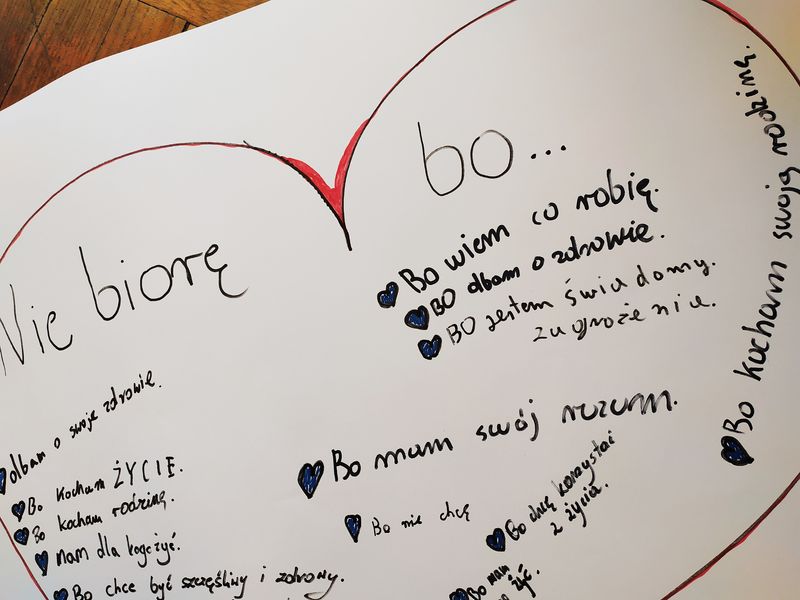 Nie biorę
bo...
Bo wiem co robię.
BO dbam o zdrowie.
BO jestem świadomy.
zagrożenia.
Bo kocham swoją rodzinę.
dbam o swoje zdrowie.
Bo kocham ŻYCIE.
Bo kocham rodzinę.
mam dla kogo żyć.
Bo chce być szczęśliwy i zdrowy.
Bo mam swój rozum.
Bo nie chcę
Bo chcę korzystać
z życia.
Bo mam
żyć.